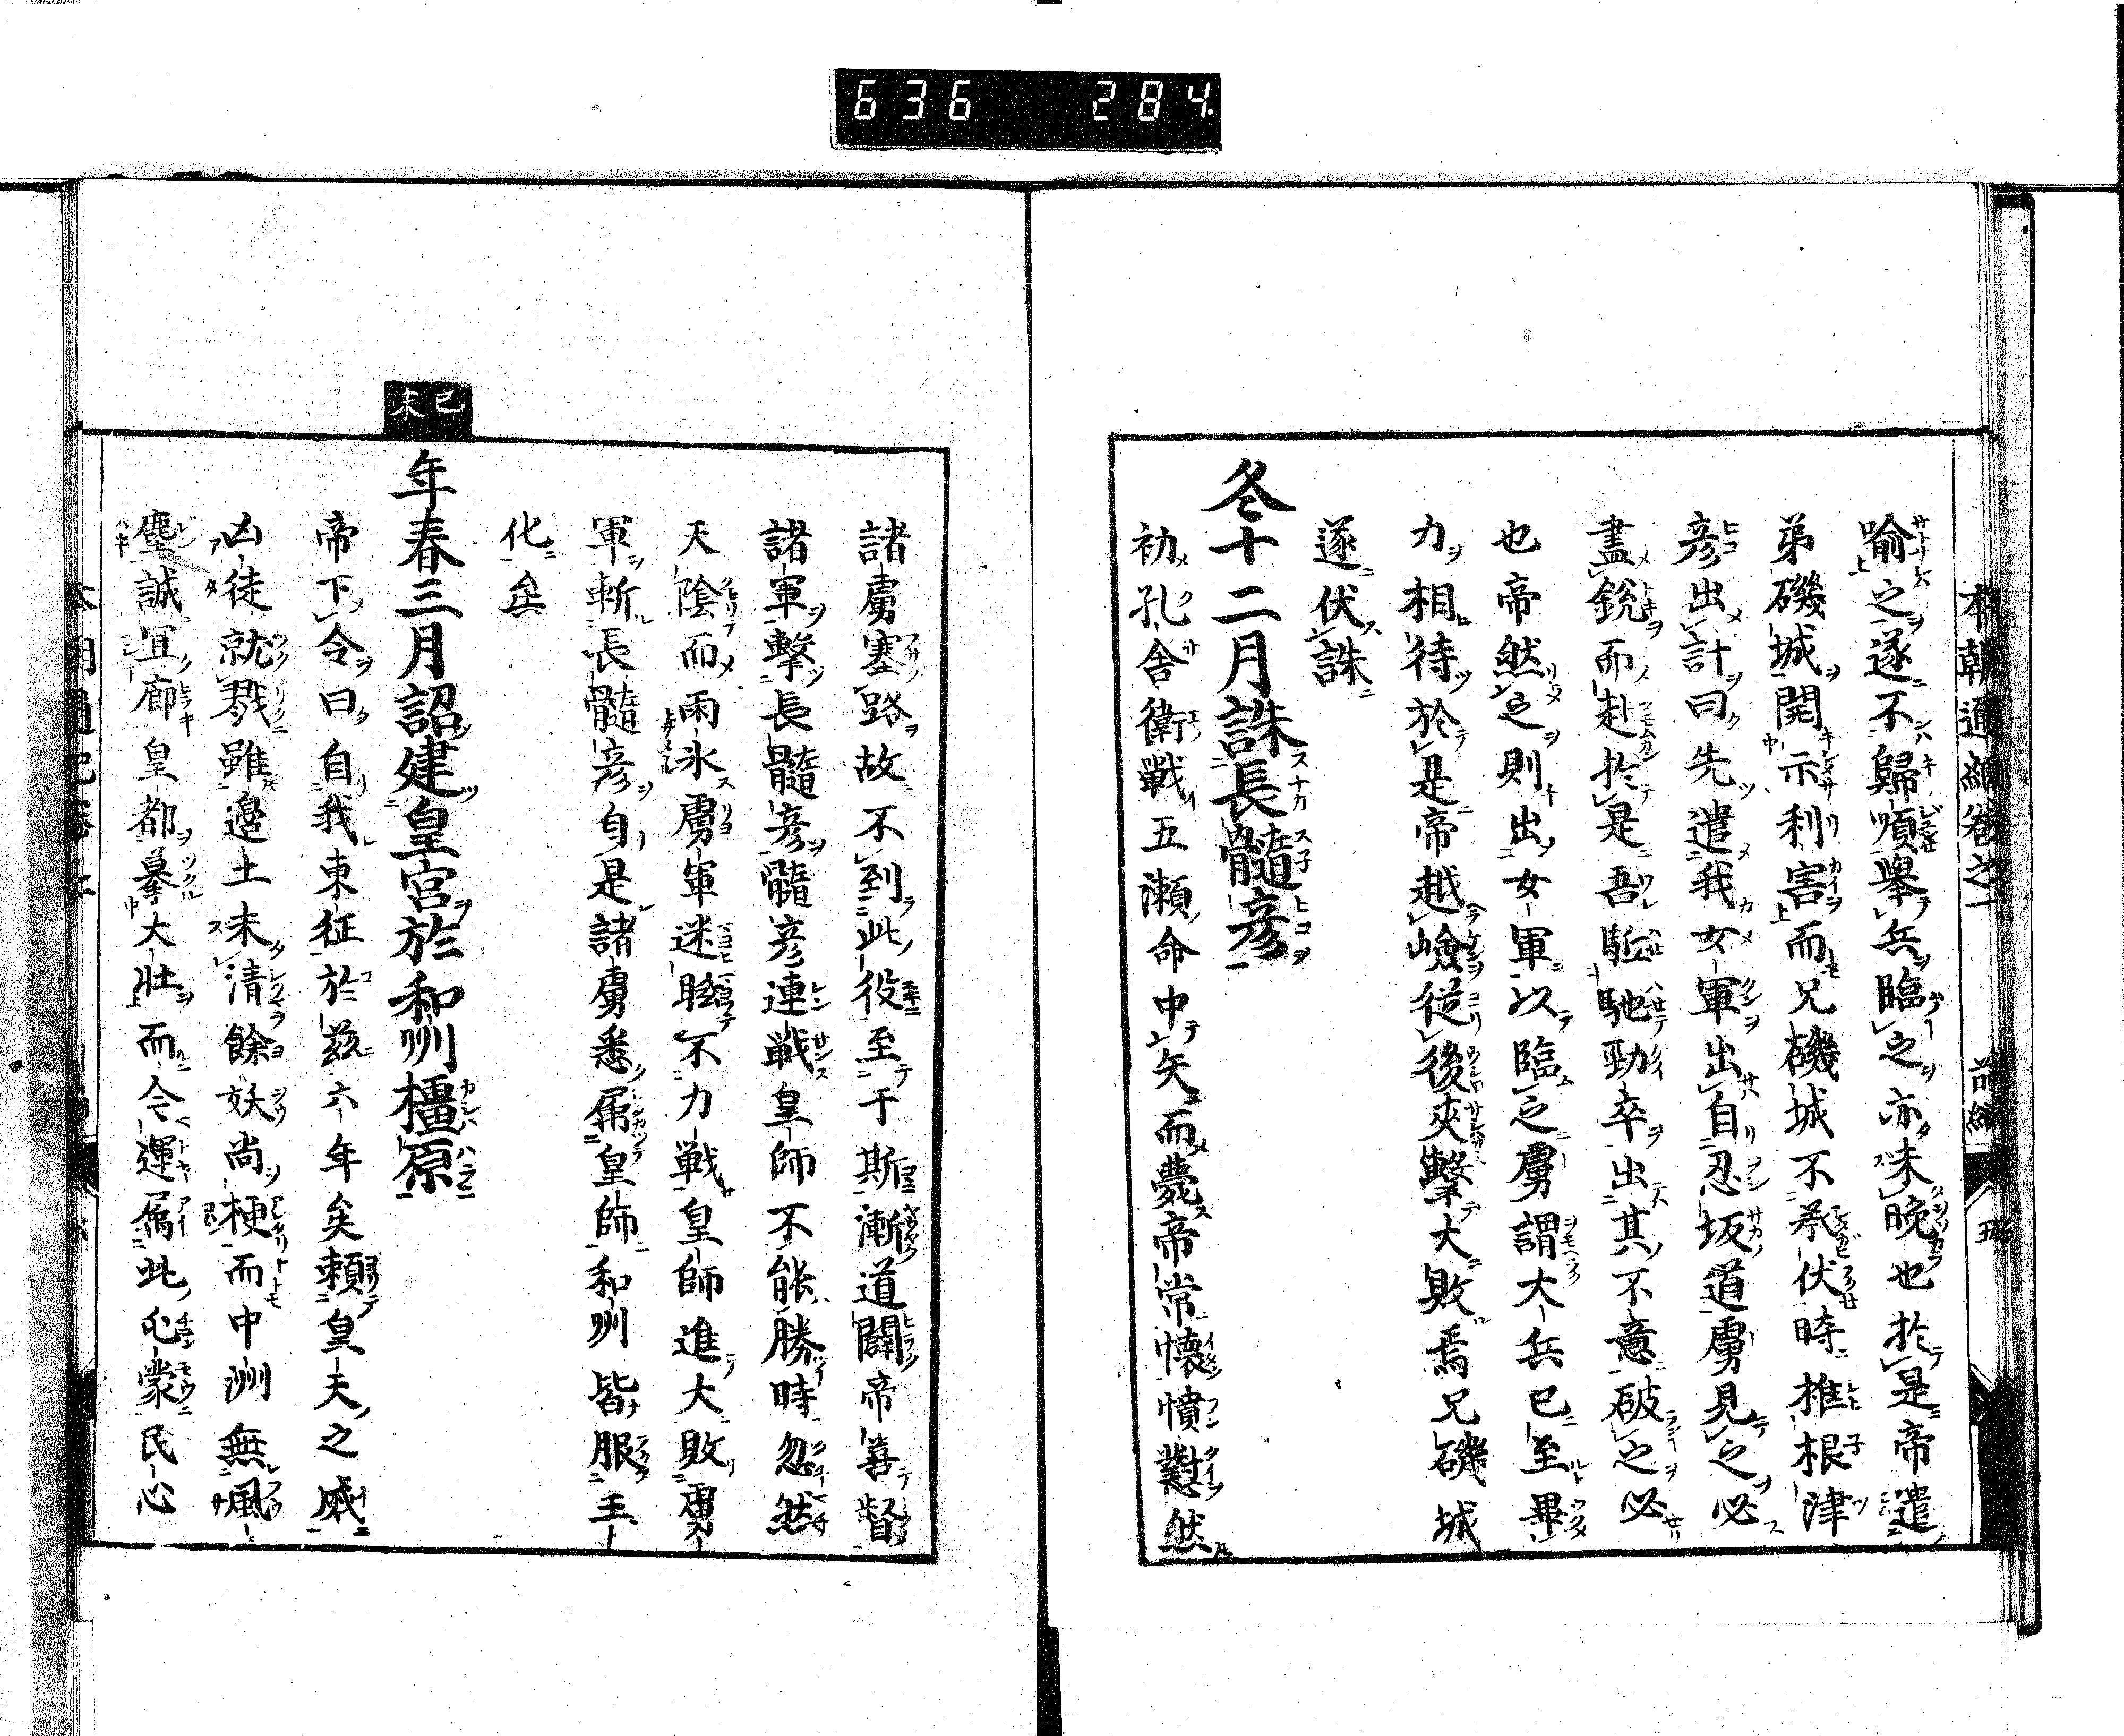 636 284
本朝通紀卷之一 前編 五
喻之遂不歸順舉兵臨之亦未晚也於是帝遣
弟磯城開示利害而兄磯城不承伏時椎根津
彦出計曰先遣我女軍出自忍坂道虜見之必
盡銳而赴於是吾駈馳勁卒出其不意破之必
也帝然之則出女軍以臨之虜謂大兵已至畢
力相待於是帝越嶮從後夾擊大敗焉兄磯城
遂伏誅
冬十二月誅長髓彦
初孔舍衛戰五瀨命中矢而薨帝常懷憤懟然
諸虜塞路故不到此役至于斯漸道闢帝善督
諸軍擊長髓彦髓彦連戦皇師不能勝時忽然
天陰而雨氷虜軍迷眩不力戦皇師進大敗虜
軍斬長髓彦自是諸虜悉属皇師和州皆服王
化矣
己未
年春三月詔建皇宮於和州橿原
帝下令曰自我東征於茲六年矣頼皇天之威
凶徒就戮雖邉土未清餘妖尚梗而中洲無風
塵誠宜廓皇都摹大壮而今運属此屯蒙民心